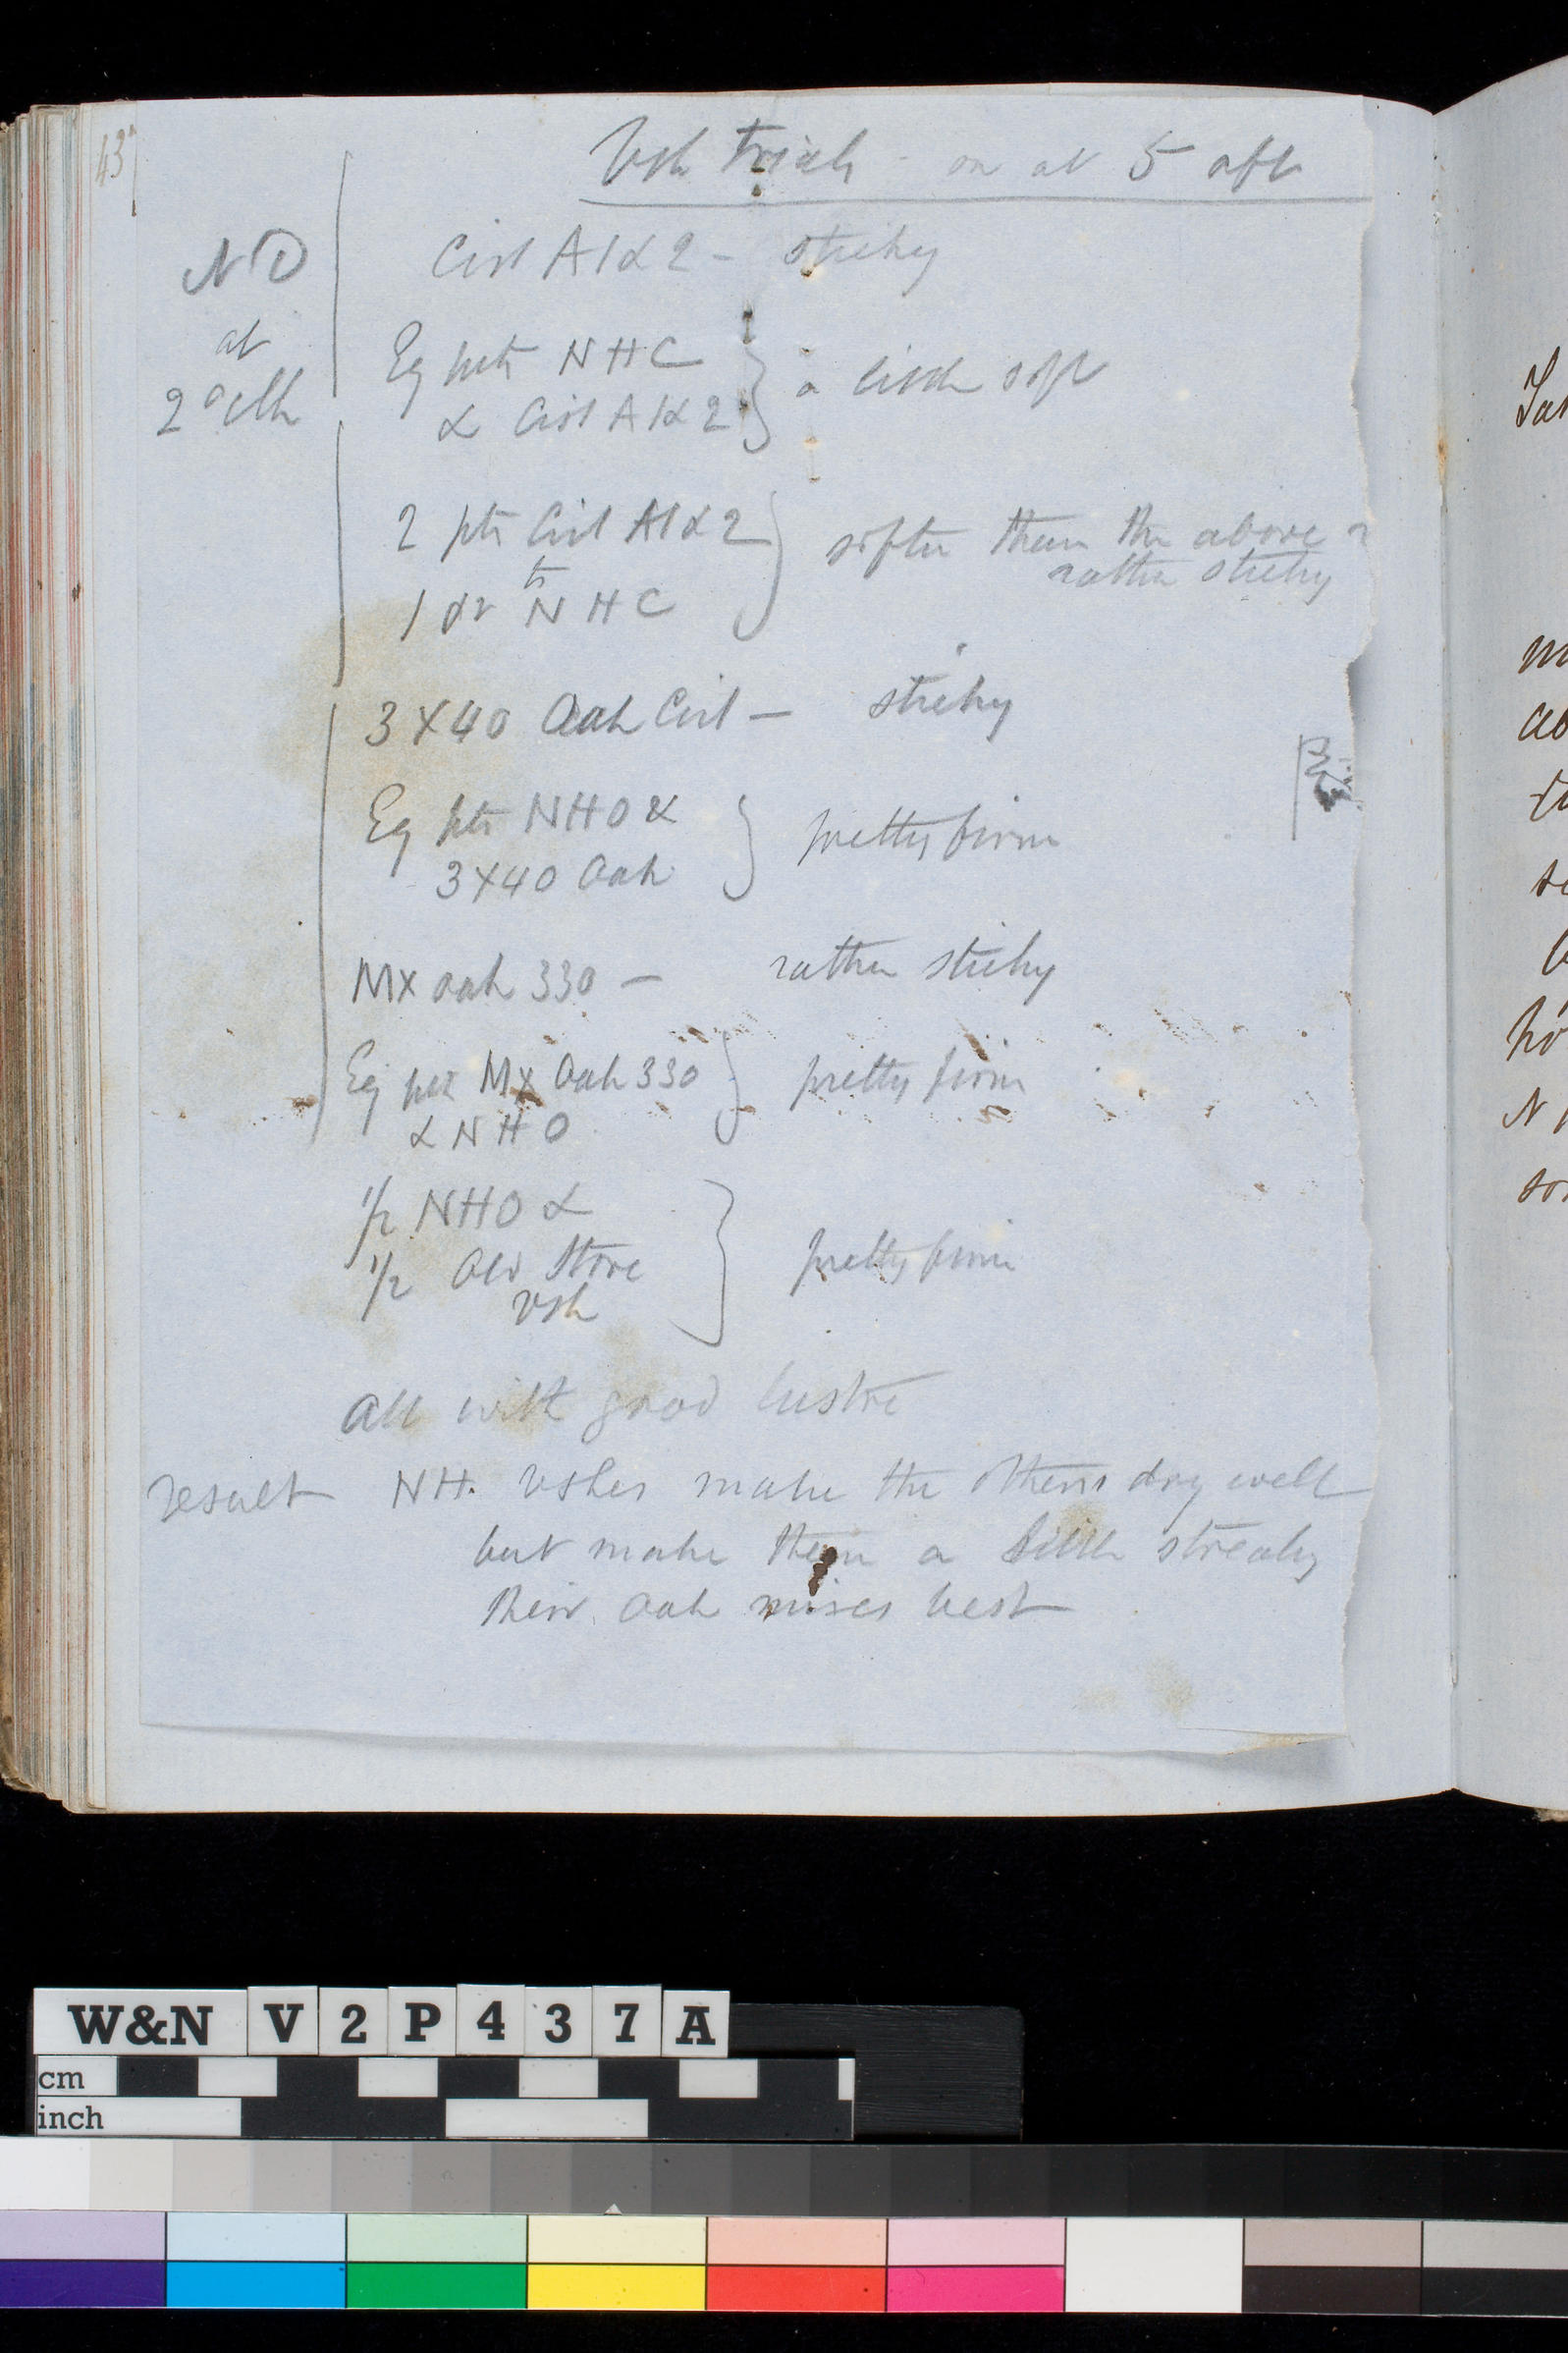 43
Vsh trials - on at 5 aft
ND
at
2 oClk
Cirl A 1 & 2 - sticky
Eq pts NHC
& Cirl A 1 & 2 } a little soft
2 pts Cirl A1 & 2
to
1 do NHC } softer than the above &
rather sticky
3X40 Oak Cirl — sticky
Eq pts NHO &
3X40 Oak } pretty firm
MX oak 330 — rather sticky
Eq pts MX Oak 330
& NHO } pretty firm
1/2 NHO &
1/2 Old Store
vsh } pretty firm
all with good lustre
result NH. vshes make the others dry well
but make them a little streaky
their Oak mixes best
W&N V2P437A
cm
inch